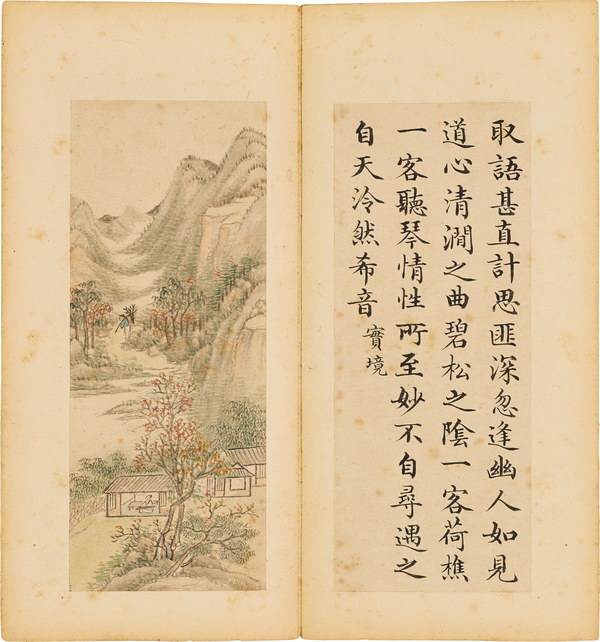 取語甚直計思匪深忽逢幽人如見
道心清澗之曲碧松之陰一客荷樵
一客聽琴情性所至妙不自尋遇之
自天泠然希音
實境